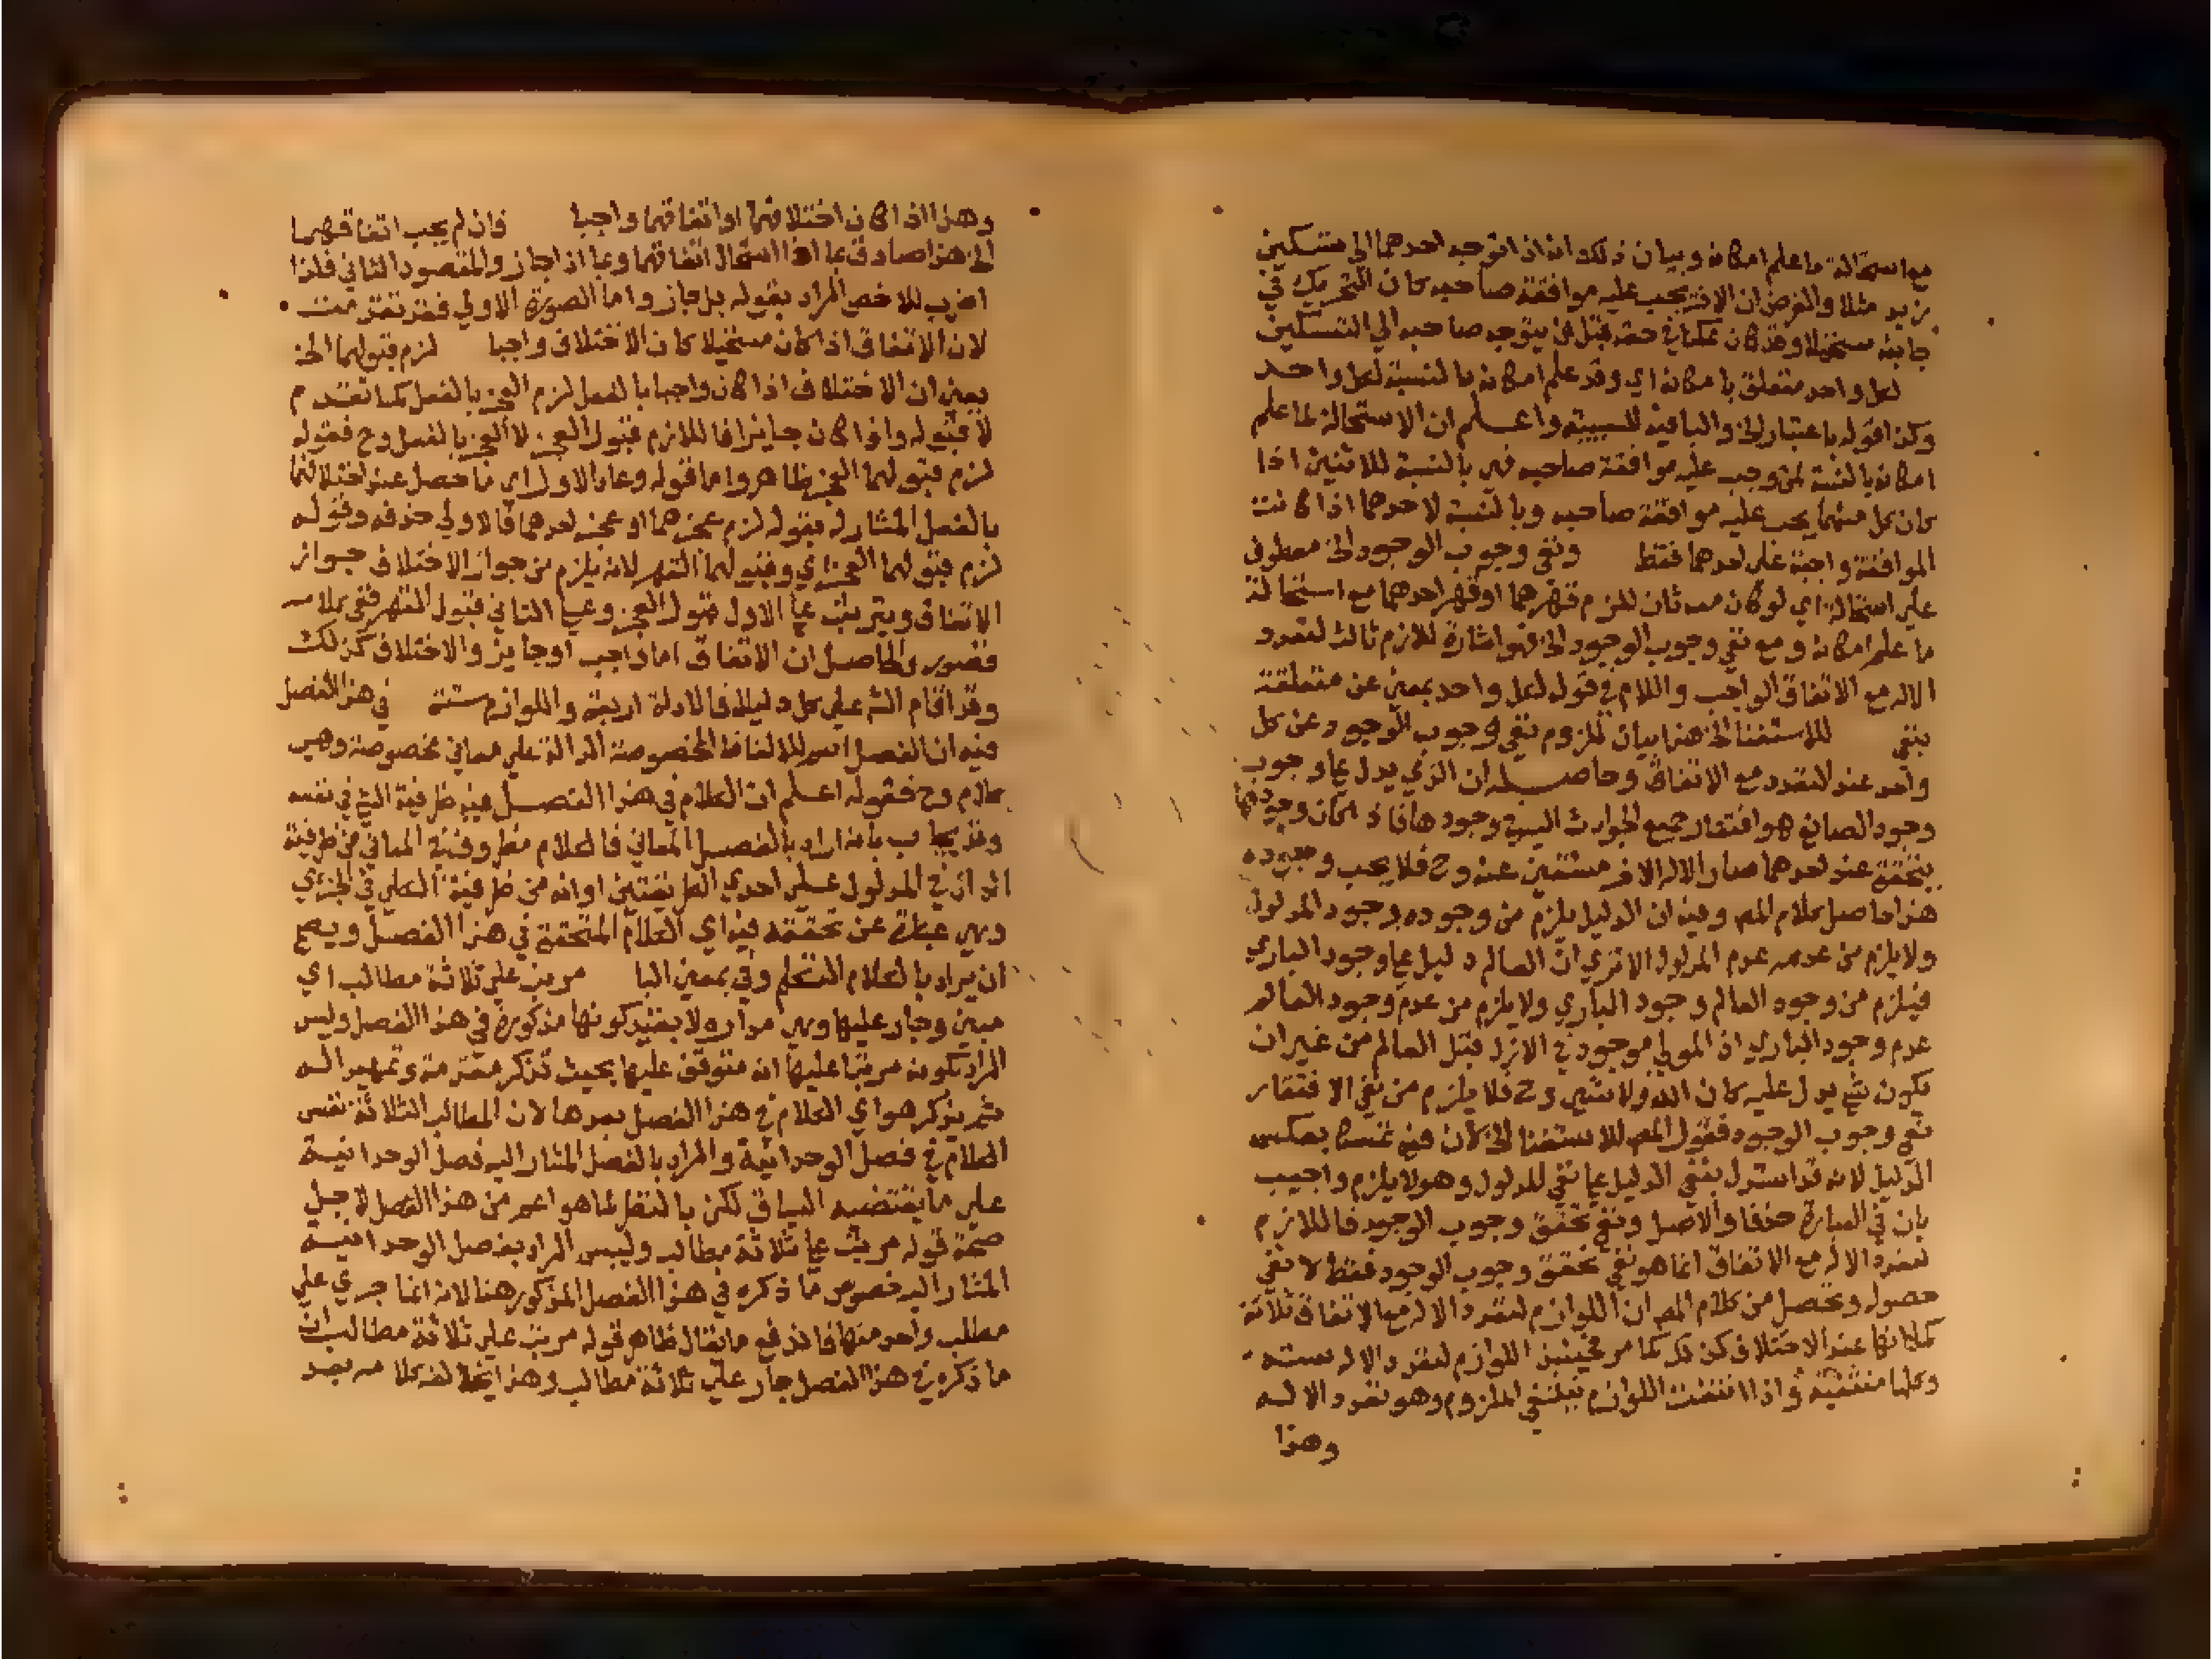 مع استحالة ما علم امكانه وبيان ذلك انه اذا توجه احدهما الى تسكين
زيد مثلا والفرض ان الاخر يجب عليه موافقة صاحبه كان التحريك في
جانبه مستحيلا وقد كان ممكنا في حقه قبل ان يتوجه صاحبه الي التسكين
لكل واحد متعلق بامكانه اي وقد علم امكانه بالنسبة لكل واحد
وكذا قوله باعتبار الخ والباء فيه للسببية واعلم ان الاستحالة لما علم
امكانه بالنسبة لمن وجب عليه موافقة صاحبه فهي بالنسبة للاثنين اذا
كان كل منهما يجب عليه موافقة صاحبه وبالنسبة لاحدهما اذا كانت
الموافقة واجبة على احدهما فقط ونفي وجوب الوجود الخ معطوف
علي استحالة اي لو كان معه ثان للزم قهرهما او قهر احدهما مع استحالة
ما علم امكانه ومع نفي وجوب الوجود الخ فهو اشارة للازم ثالث لتعدد
الاله مع الاتفاق الواجب واللام في قوله لكل واحد بمعنى عن متعلقة
بنفي للاستغنا الخ هذا بيان للزوم نفي وجوب الوجود عن كل
واحد عند التعدد مع الاتفاق وحاصله ان الذي يدل علي وجوب
وجود الصانع هو افتقار جميع الحوادث اليه في وجودها فاذا كان وجودها
يتحقق عند احدهما صار الاله الاخر مستغني عنه وح فلا يجب وجوده
هذا حاصل كلام المص وفيه ان الدليل يلزم من وجوده وجود المدلول
ولا يلزم من عدمه عدم المدلول الا تري ان العالم دليل علي وجود الباري
فيلزم من وجود العالم وجود الباري ولا يلزم من عدم وجود العالم
عدم وجود الباري اذ المولي موجود في الازل قبل العالم من غير ان
يكون شي يدل عليه كان الله ولا شي وح فلا يلزم من نفي الافتقار
نفي وجوب الوجود فقول المص للاستغنا الخ لان فيه تمسكا بعكس
الدليل لانه قد استدل بنفي الدليل علي نفي المدلول وهو لا يلزم واجيب
بان في العبارة حذفا والاصل ونفي تحقق وجوب الوجود فاللازم
لتعدد الاله مع الاتفاق انما هو نفي تحقق وجوب الوجود فقط لا نفي
حصوله وتحصل من كلام المص ان اللوازم لتعدد الاله مع الاتفاق ثلاثة
كما انها عند الاختلاف كذلك كما مر فحينئذ اللوازم لتعدد الاله ستة
وكلها منتفية واذا انتفت اللوازم فينتفي الملزوم وهو تعدد الاله
وهذا
وهذا اذا كان اختلافهما او اتفاقهما واجبا فان لم يجب اتفاقهما
الخ هذا صادق بما اذا استحال اتفاقهما وبما اذا جاز والمقصود الثاني فلذا
اضرب للاخص المراد بقوله بل جاز واما الصورة الاولي فقد تقدمت
لان الاتفاق اذا كان مستحيلا كان الاختلاف واجبا لزم قبولهما الخ
بمعني ان الاختلاف اذا كان واجبا بالفعل لزم العجز بالفعل كما تقدم
لا قبوله واذا كان جايزا فاللازم قبول العجز لا العجز بالفعل وح فقوله
لزم قبولهما العجز ظاهر واما قوله وعاد الاول اي ما حصل عند اختلافهما
بالفعل المشار له بقوله لزم عجزهما او عجز احدهما فالاولي حذفه وقوله
لزم قبولهما العجز اي وقبولهما القهر لانه يلزم من جواز الاختلاف جواز
الاتفاق ويترتب علي الاول قبول العجز وعلي الثاني قبول القهر ففي كلامه
قصور والحاصل ان الاتفاق اما واجب او جايز والاختلاف كذلك
وقد اقام الش علي كل دليلا فالادلة اربعة واللوازم ستة في هذا الفصل
فيه ان الفصل اسم للالفاظ المخصوصة الدالة علي معاني مخصوصة وهي
كلام وح فقوله اعلم ان الكلام في هذا الفصل فيه ظرفية الشي في نفسه
وقد يجاب بانه اراد بالفصل المعاني فالكلام مظروف في المعاني من ظرفية
الدال في المدلول علي احدي الطريقتين او انه من ظرفية الكلي في الجزئي
وهي عبارة عن تحققه فيه اي الكلام المتحقق في هذا الفصل ويصح
ان يراد بالكلام التكلم وفي بمعنى البا مرتب علي ثلاثة مطالب اي
مبين وجار عليها وهي مداره ولا بقيد كونها مذكورة في هذا الفصل وليس
المراد بكونه مرتبا عليها انه متوقف عليها بحيث تذكر مقدمة وتمهيدا له
ثم يذكر هو اي الكلام في هذا الفصل بعدها لان المطالب الثلاثة نفس
الكلام في فصل الوحدانية والمراد بالفصل المشار اليه فصل الوحدانية
علي ما يقتضيه السياق لكن بالنظر لما هو اعم من هذا الفصل لاجل
صحة قوله مرتب علي ثلاثة مطالب وليس المراد بفصل الوحدانية
المشار اليه خصوص ما ذكره في هذا الفصل المذكور هنا لانه انما جري علي
مطلب واحد منها فاندفع ما يقال ظاهر قوله مرتب علي ثلاثة مطالب ان
ما ذكره في هذا الفصل جار علي ثلاثة مطالب وهذا يخالفه كلامه بعد